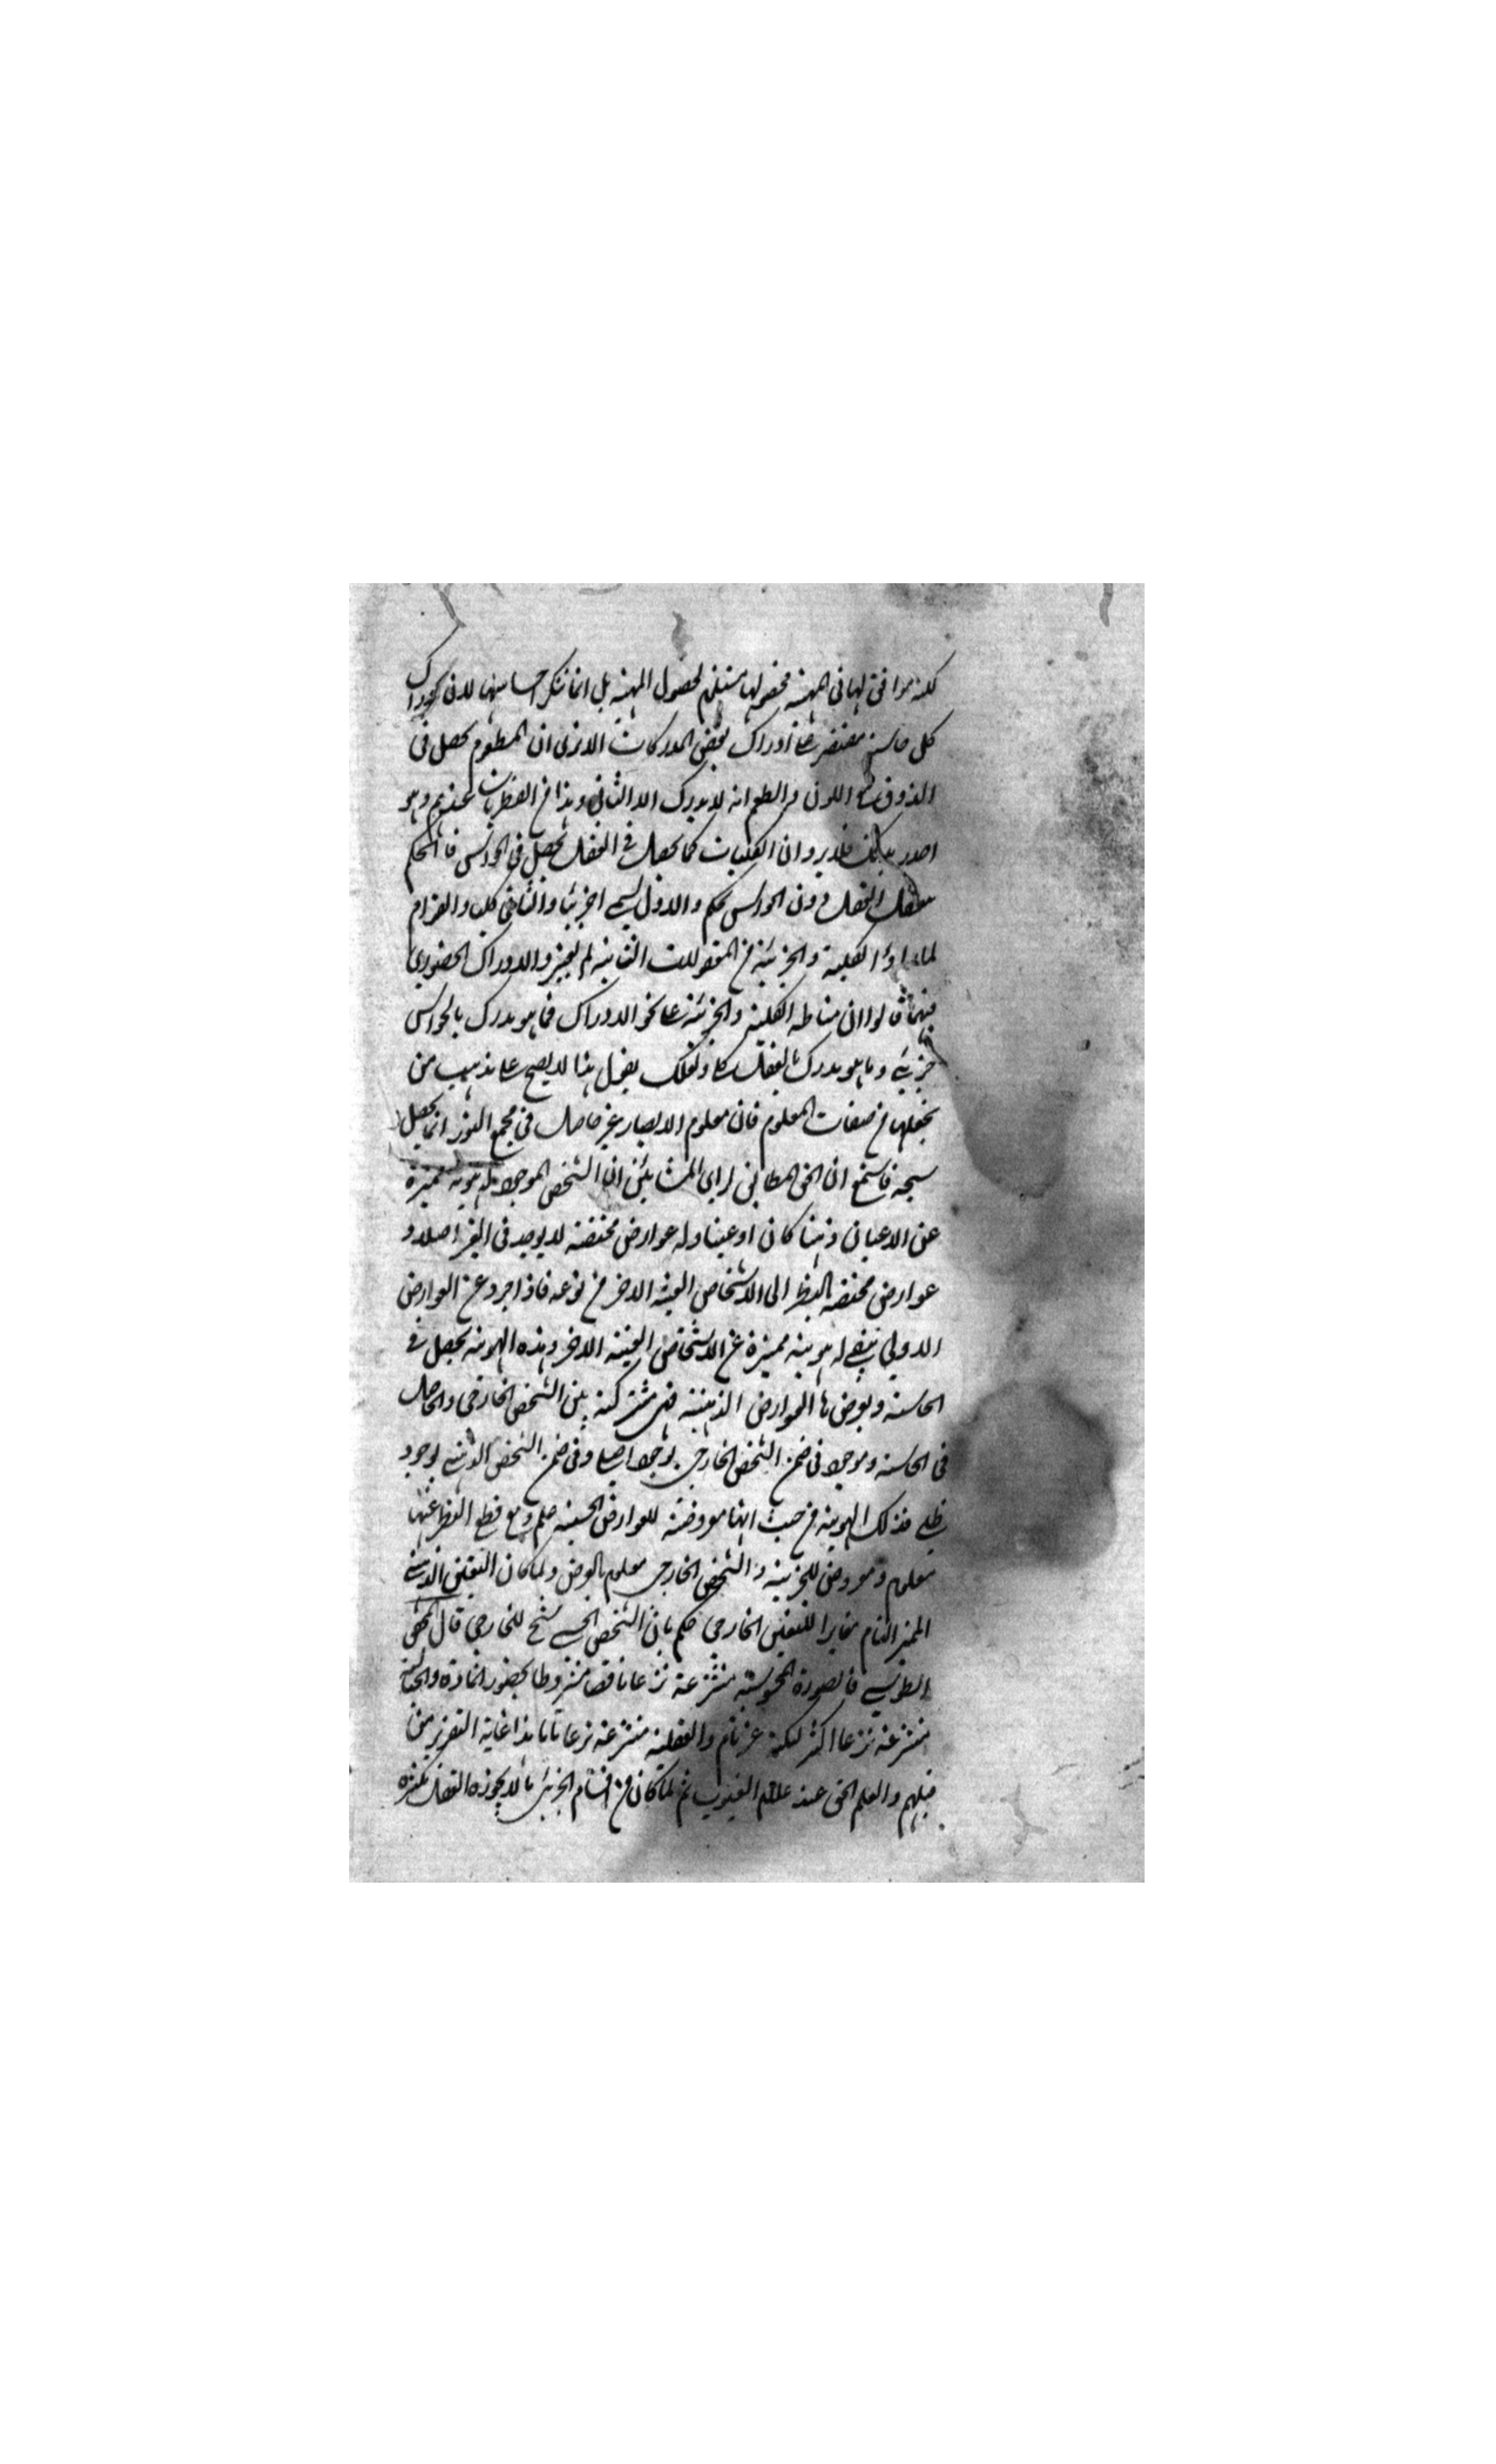 لكنه موافق لها في المهية فحصولها مستلزم لحصول المهية بل انما ننكر احساسها لان ادراك
كل حاسة مقتصر على ادراك بعض المدركات الا ترى ان المطعوم يحصل في
الذوق مع اللون والطعم انه لا يدرك الا الثاني وهذا من الفطريات عندهم وهو
فلا يرد ان الكليات كما يحصل في العقل يحصل في الحواس فالحكم
العقل دون الحواس تحكم والاول يسمى جزئيا والثاني كليا والقوم
لما راوا الكلية والجزئية من المعقولات الثانية لم يعتبر والادراك الحضوري
فيهما قالوا ان مناط الكلية والجزئية على نحو الادراك فما هو يدرك بالحواس
جزئي وما هو يدرك بالعقل كلي ولعلك تقول هذا لا يصح على مذهب من
يجعلها من صفات المعلوم فان معلوم الابصار غير حاصل في مجمع النور انما يحصل
شبحه فاستمع ان الحق المطابق لراي المشائين ان الشخص الموجود له هوية مميزة
عن الاعيان ذهنا كان او عينا وله عوارض مختصة لا يوجد في الغير اصلا و
عوارض مختصة بالنظر الى الاشخاص العينية الاخر من نوعه فاذا جرد عن العوارض
الاولى يبقى له هوية مميزة عن الاشخاص العينية الاخر وهذه الهوية يحصل في
الحاسة ويعرض بها العوارض الذهنية فهي مشتركة بين الشخص الخارجي والحاصل
في الحاسة وموجود في ضمن الشخص الخارجي بوجود اصلي وفي ضمن الشخص الذهني بوجود
ظلي فذلك الهوية من حيث انها معروضة للعوارض الحسية علم ومع قطع النظر عنها
معلوم ومعروض للجزئية والشخص الخارجي معلوم بالعرض ولما كان التعين الذهني
المميز التام مغايرا للتعين الخارجي حكم بان الشخص الحسي شبح للخارجي قال المحقق
الطوسي فالصورة المحسوسة منتزعة نزعا ناقصا مشروطا بحضور المادة والخيالية
منتزعة نزعا اكثر لكنه غير تام والعقلية منتزعة نزعا تاما هذا غاية التقرير من
قبلهم والعلم الحق عند علام الغيوب ثم لما كان من اقسام الجزئي ما لا يجوزه العقل تكثره